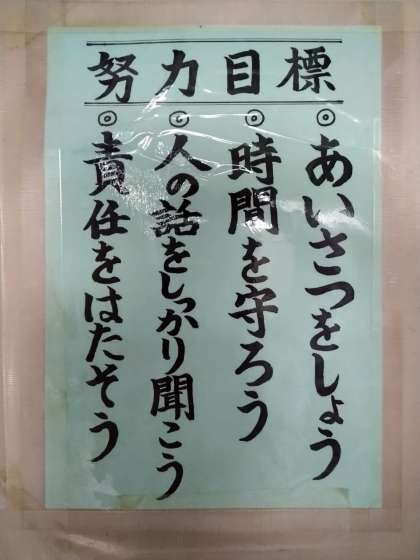 努力目標
◎あいさつをしょう
◎時間を守ろう
◎人の話をしっかり聞こう
◎責任をはたそう